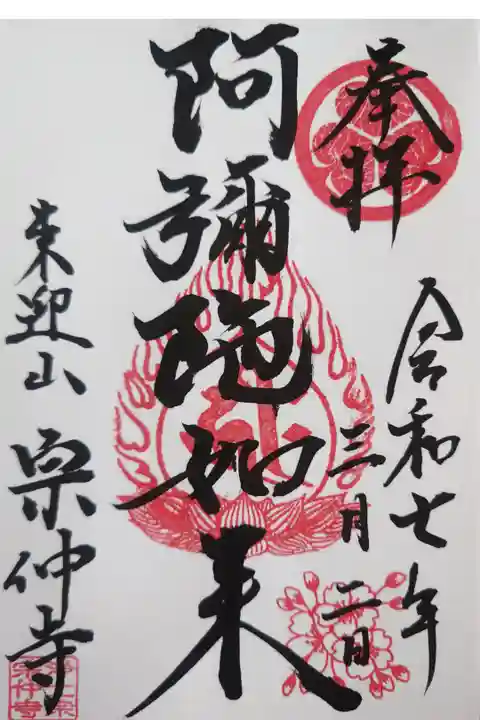 奉拝
令和七年
三月二日
阿彌陀如来
来迎山
宗仲寺